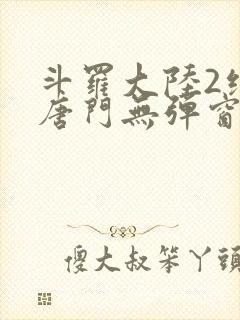 斗羅大陸2
唐門無彈窗
傻大叔笨丫頭